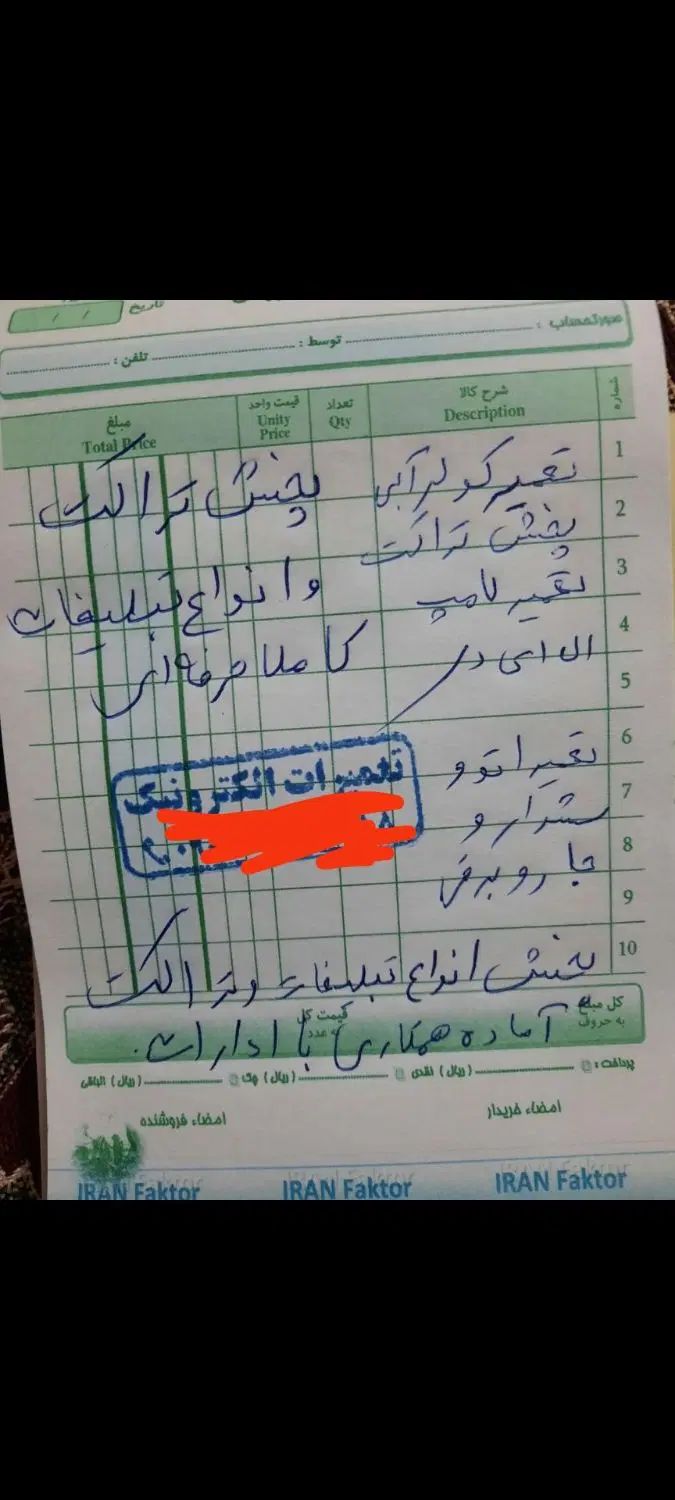 تاریخ / /
صورتحساب : توسط : تلفن :
شماره شرح کالا تعداد قیمت واحد مبلغ
Description Qty Unity Price Total Price
1 تعمیر کولر آبی پخش تراکت
2 پخش تراکت
3 تعمیر لامپ و انواع تبلیغات
4 ال ای دی کاملا حرفه ای
5
6 تعمیر اتو و
تعمیرات الکترونیک
7 سشوار و
8 جارو برقی
9
10 پخش انواع تبلیغات و تراکت
کل مبلغ به حروف قیمت کل به عدد
آماده همکاری با ادارات.
پرداخت : (ریال) نقدی (ریال) چک (ریال) الباقی
امضاء خریدار امضاء فروشنده
IRAN Faktor IRAN Faktor IRAN Faktor